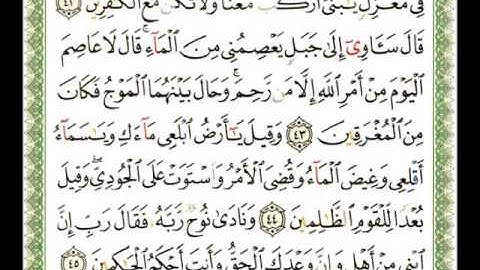 فِى مَعْزِلٍ يَـٰبُنَىَّ ٱرْكَب مَّعَنَا وَلَا تَكُن مَّعَ ٱلْكَـٰفِرِينَ ٤٢
قَالَ سَـَٔاوِىٓ إِلَىٰ جَبَلٍ يَعْصِمُنِى مِنَ ٱلْمَآءِ ۚ قَالَ لَا عَاصِمَ
ٱلْيَوْمَ مِنْ أَمْرِ ٱللَّهِ إِلَّا مَن رَّحِمَ ۚ وَحَالَ بَيْنَهُمَا ٱلْمَوْجُ فَكَانَ
مِنَ ٱلْمُغْرَقِينَ ٤٣ وَقِيلَ يَـٰٓأَرْضُ ٱبْلَعِى مَآءَكِ وَيَـٰسَمَآءُ
أَقْلِعِى وَغِيضَ ٱلْمَآءُ وَقُضِىَ ٱلْأَمْرُ وَٱسْتَوَتْ عَلَى ٱلْجُودِىِّ ۖ وَقِيلَ
بُعْدًا لِّلْقَوْمِ ٱلظَّـٰلِمِينَ ٤٤ وَنَادَىٰ نُوحٌ رَّبَّهُۥ فَقَالَ رَبِّ إِنَّ
ٱبْنِى مِنْ أَهْلِى وَإِنَّ وَعْدَكَ ٱلْحَقُّ وَأَنتَ أَحْكَمُ ٱلْحَـٰكِمِينَ ٤٥